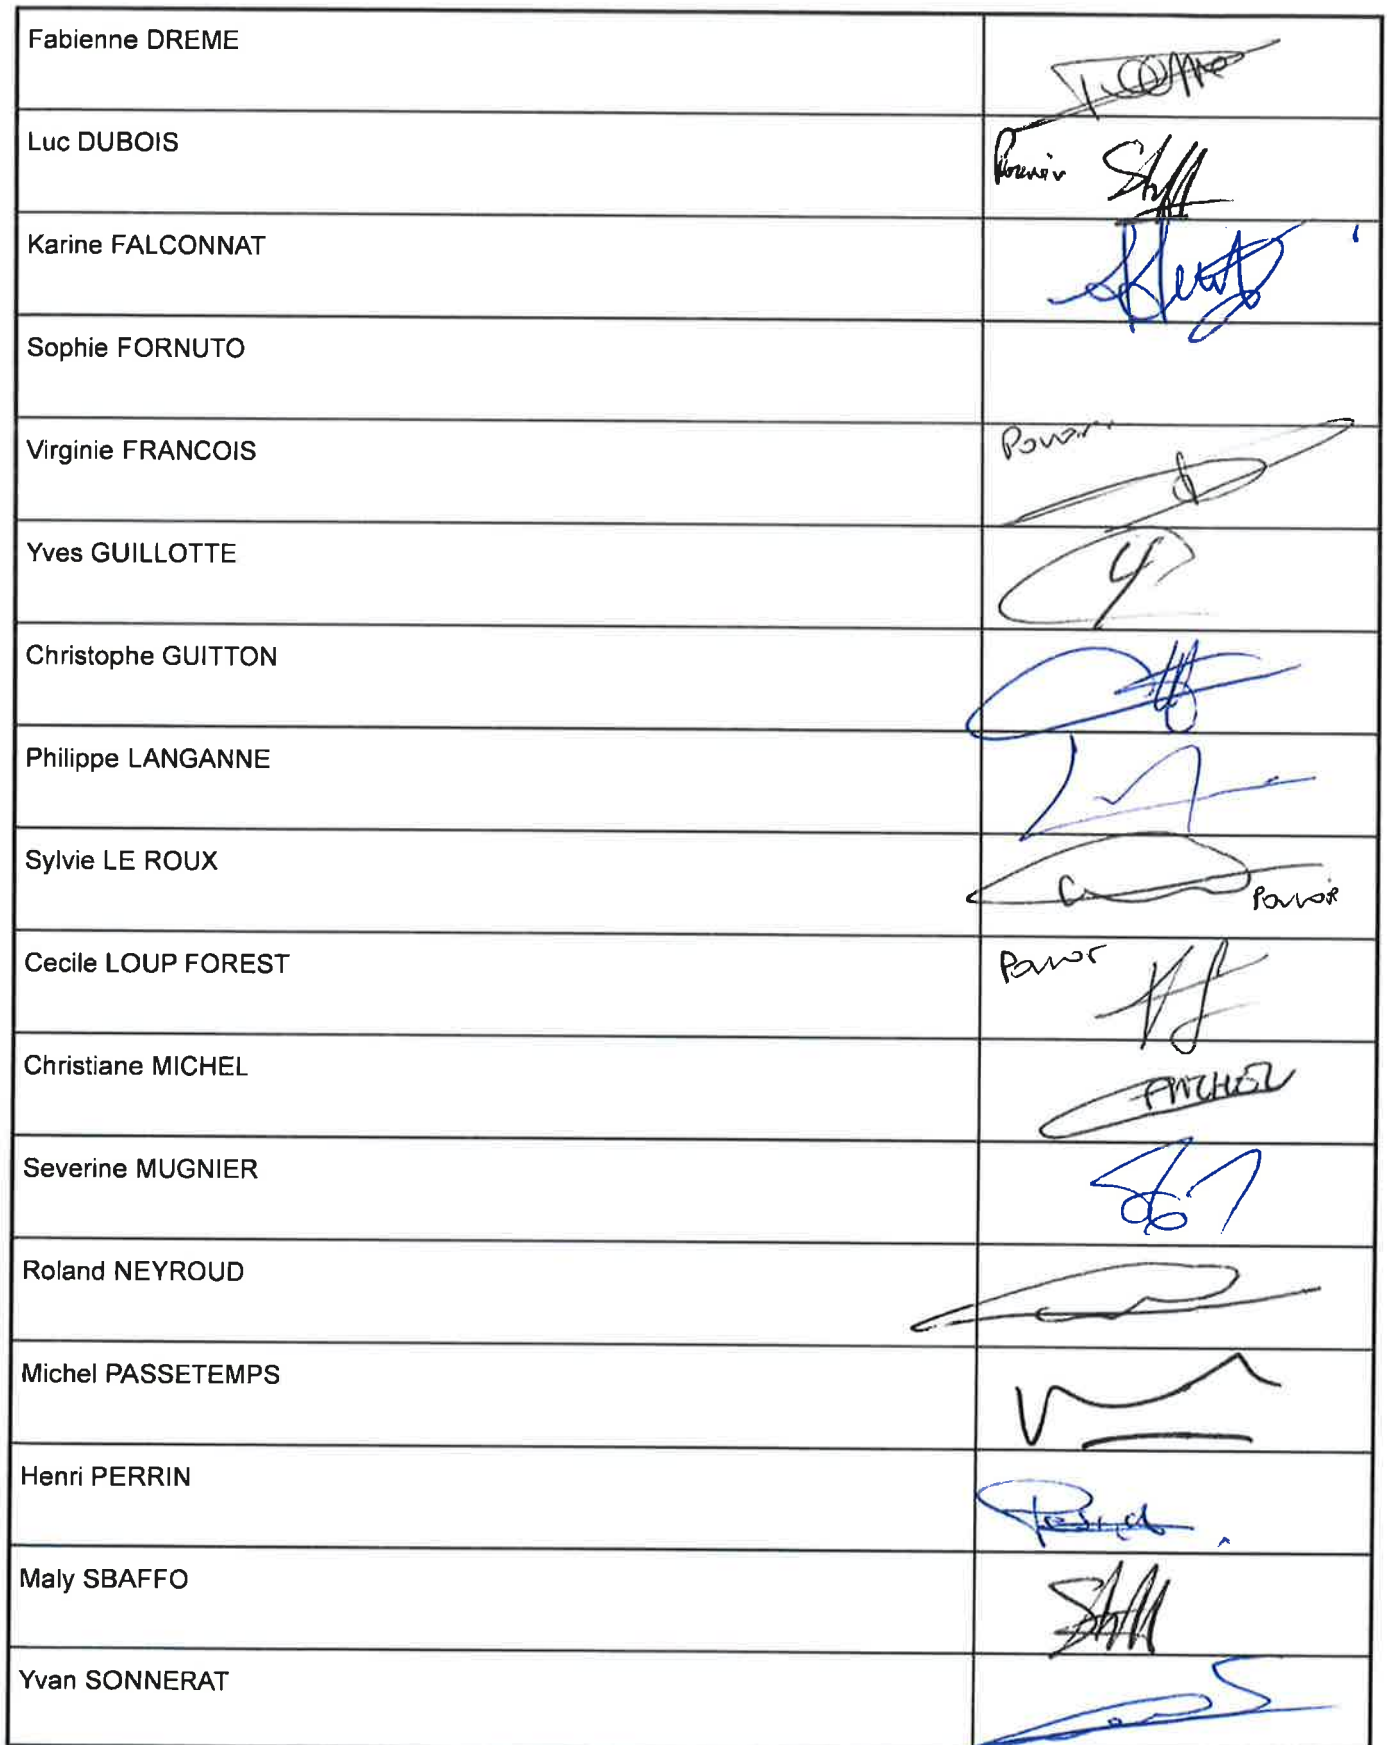 Fabienne DREME
Luc DUBOIS
Pouvoir
Karine FALCONNAT
Sophie FORNUTO
Virginie FRANCOIS
Pouvoir
Yves GUILLOTTE
Christophe GUITTON
Philippe LANGANNE
Sylvie LE ROUX
Pouvoir
Cecile LOUP FOREST
Pouvoir
Christiane MICHEL
Severine MUGNIER
Roland NEYROUD
Michel PASSETEMPS
Henri PERRIN
Maly SBAFFO
Yvan SONNERAT